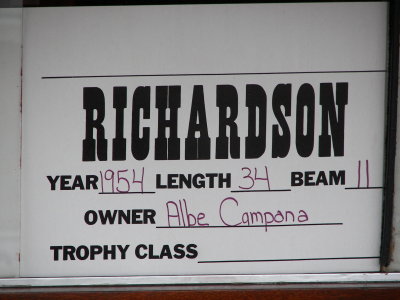 RICHARDSON
YEAR 1954 LENGTH 34 BEAM 11
OWNER Albe Campana
TROPHY CLASS